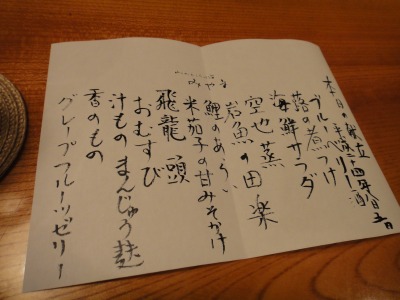 本日の献立
ブルーベリー酒
蕗の煮つけ
海鮮サラダ
空也蒸
岩魚の田楽
鯉のあらい
米茄子の甘みそかけ
飛龍頭
おむすび
汁もの まんじゅう麩
香のもの
グレープフルーツゼリー
みやま